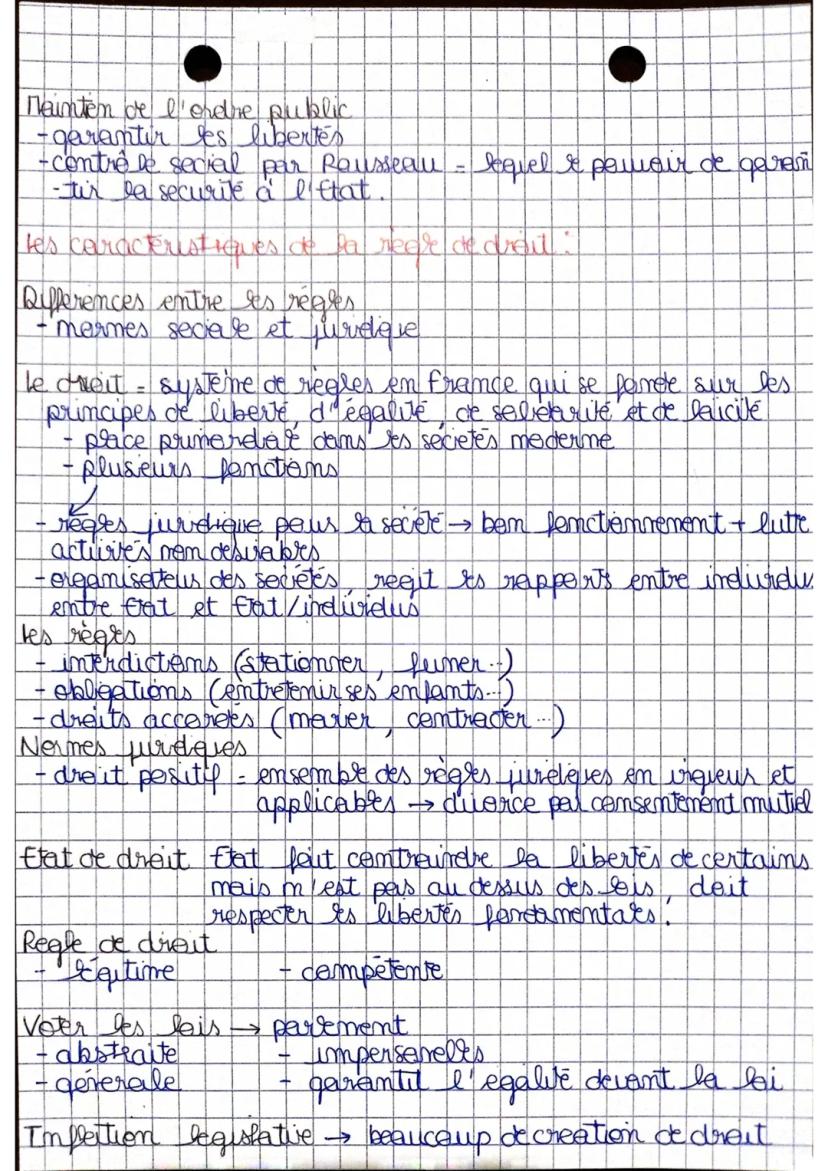 Maintien de l'ordre public
- garantir les libertés
- contrôle social par Rousseau = lequel le pouvoir de garan
- tir la securité à l'État.
Les caractéristiques de la règle de droit :
Differences entre les règles
- normes sociale et juridique
Le droit = système de règles en France qui se fonde sur les
principes de liberté, d'égalité, de solidarité et de laïcité
- place primordiale dans les sociétés moderne
- plusieurs fonctions
- règles juridique pour la société → bon fonctionnement + lutte
activités non desirables
- organisateur des sociétés, regit les rapports entre individu
entre État et État/individus
Les règles
- interdictions (stationner, fumer...)
- obligations (entretenir ses enfants...)
- droits accordés (marier, contracter...)
Normes juridiques
- droit positif = ensemble des règles juridiques en vigueur et
applicables → divorce par consentement mutuel
État de droit État fait contraindre la libertés de certains
mais n'est pas au dessus des lois, doit
respecter les libertés fondamentales.
Regle de droit
- légitime - compétente
Voter les lois → parlement
- abstraite - impersonelles
- génerale - garantit l'egalité devant la loi
Inflation legislative → beaucoup de creation de droit